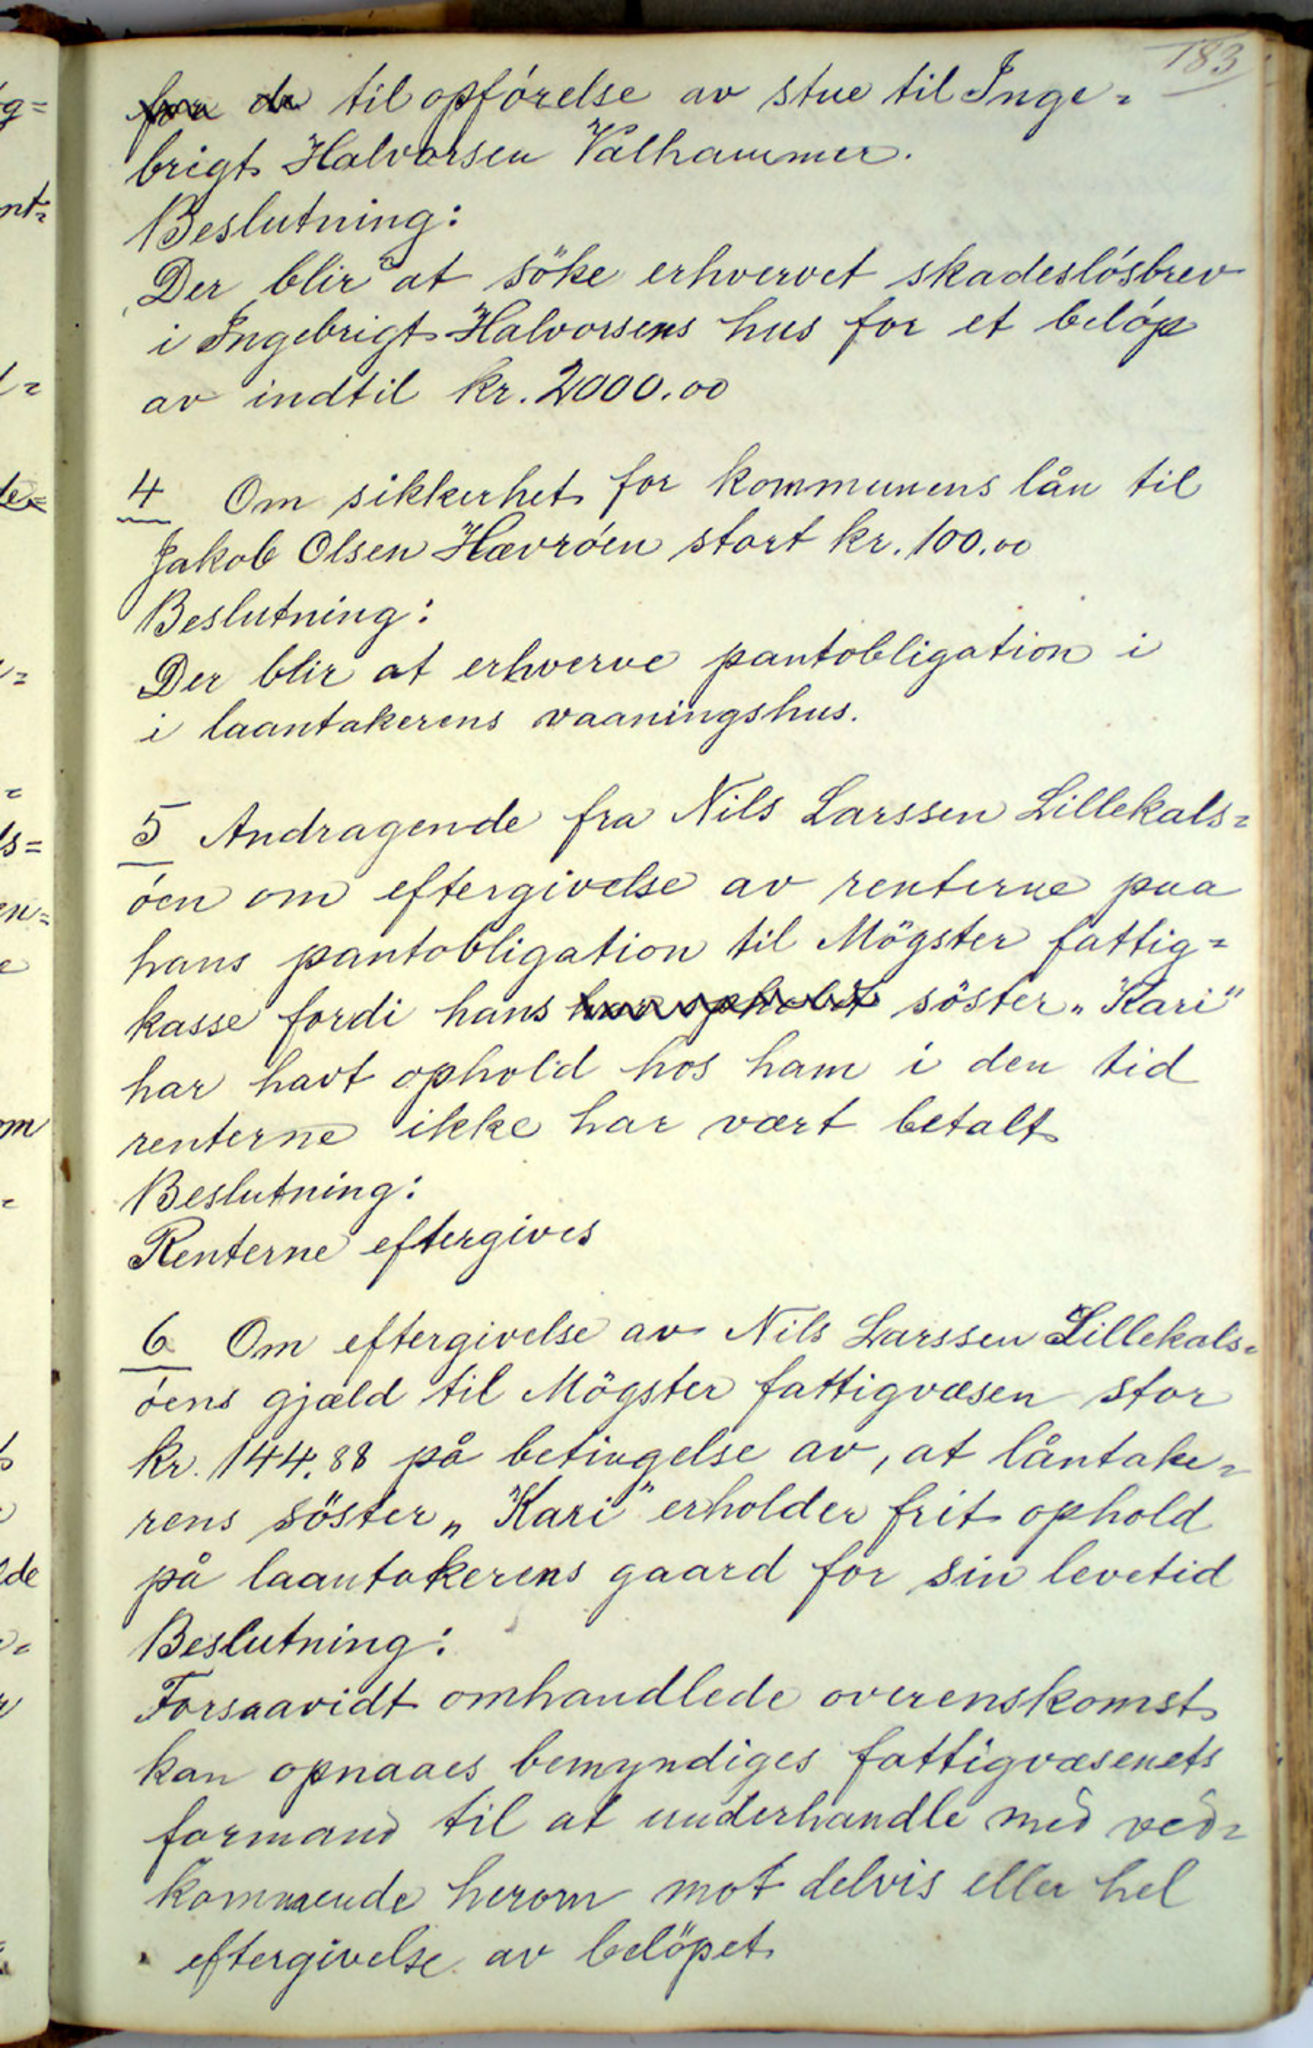 183
fra de til opförelse av stue til Inge=
brigt Halvorsen Valhammer.
Beslutning:
Der blir at söke erhvervet skadeslösbrev
i Ingebrigt Halvorsens hus for et belöp
av indtil kr. 2000.00
4 Om sikkerhet for kommunens lån til
Jakob Olsen Hævröen stort kr. 100.00
Beslutning:
Der blir at erhverve pantobligation i
i laantakerens vaaningshus.
5 Andragende fra Nils Larssen Lillekals=
öen om eftergivelse av renterne paa
hans pantobligation til Mögster fattig=
kasse fordi hans har ophold söster „Kari"
har havt ophold hos ham i den tid
renterne ikke har vært betalt
Beslutning:
Renterne eftergives
6 Om eftergivelse av Nils Larssen Lillekals=
öens gjæld til Mögster fattigvæsen stor
kr. 144.88 på betingelse av, at låntake=
rens söster „Kari" erholder frit ophold
på laantakerens gaard for sin levetid
Beslutning:
Forsaavidt omhandlede overenskomst
kan opnaaes bemyndiges fattigvæsenets
formand til at underhandle med ved=
kommende herom mot delvis eller hel
eftergivelse av belöpet